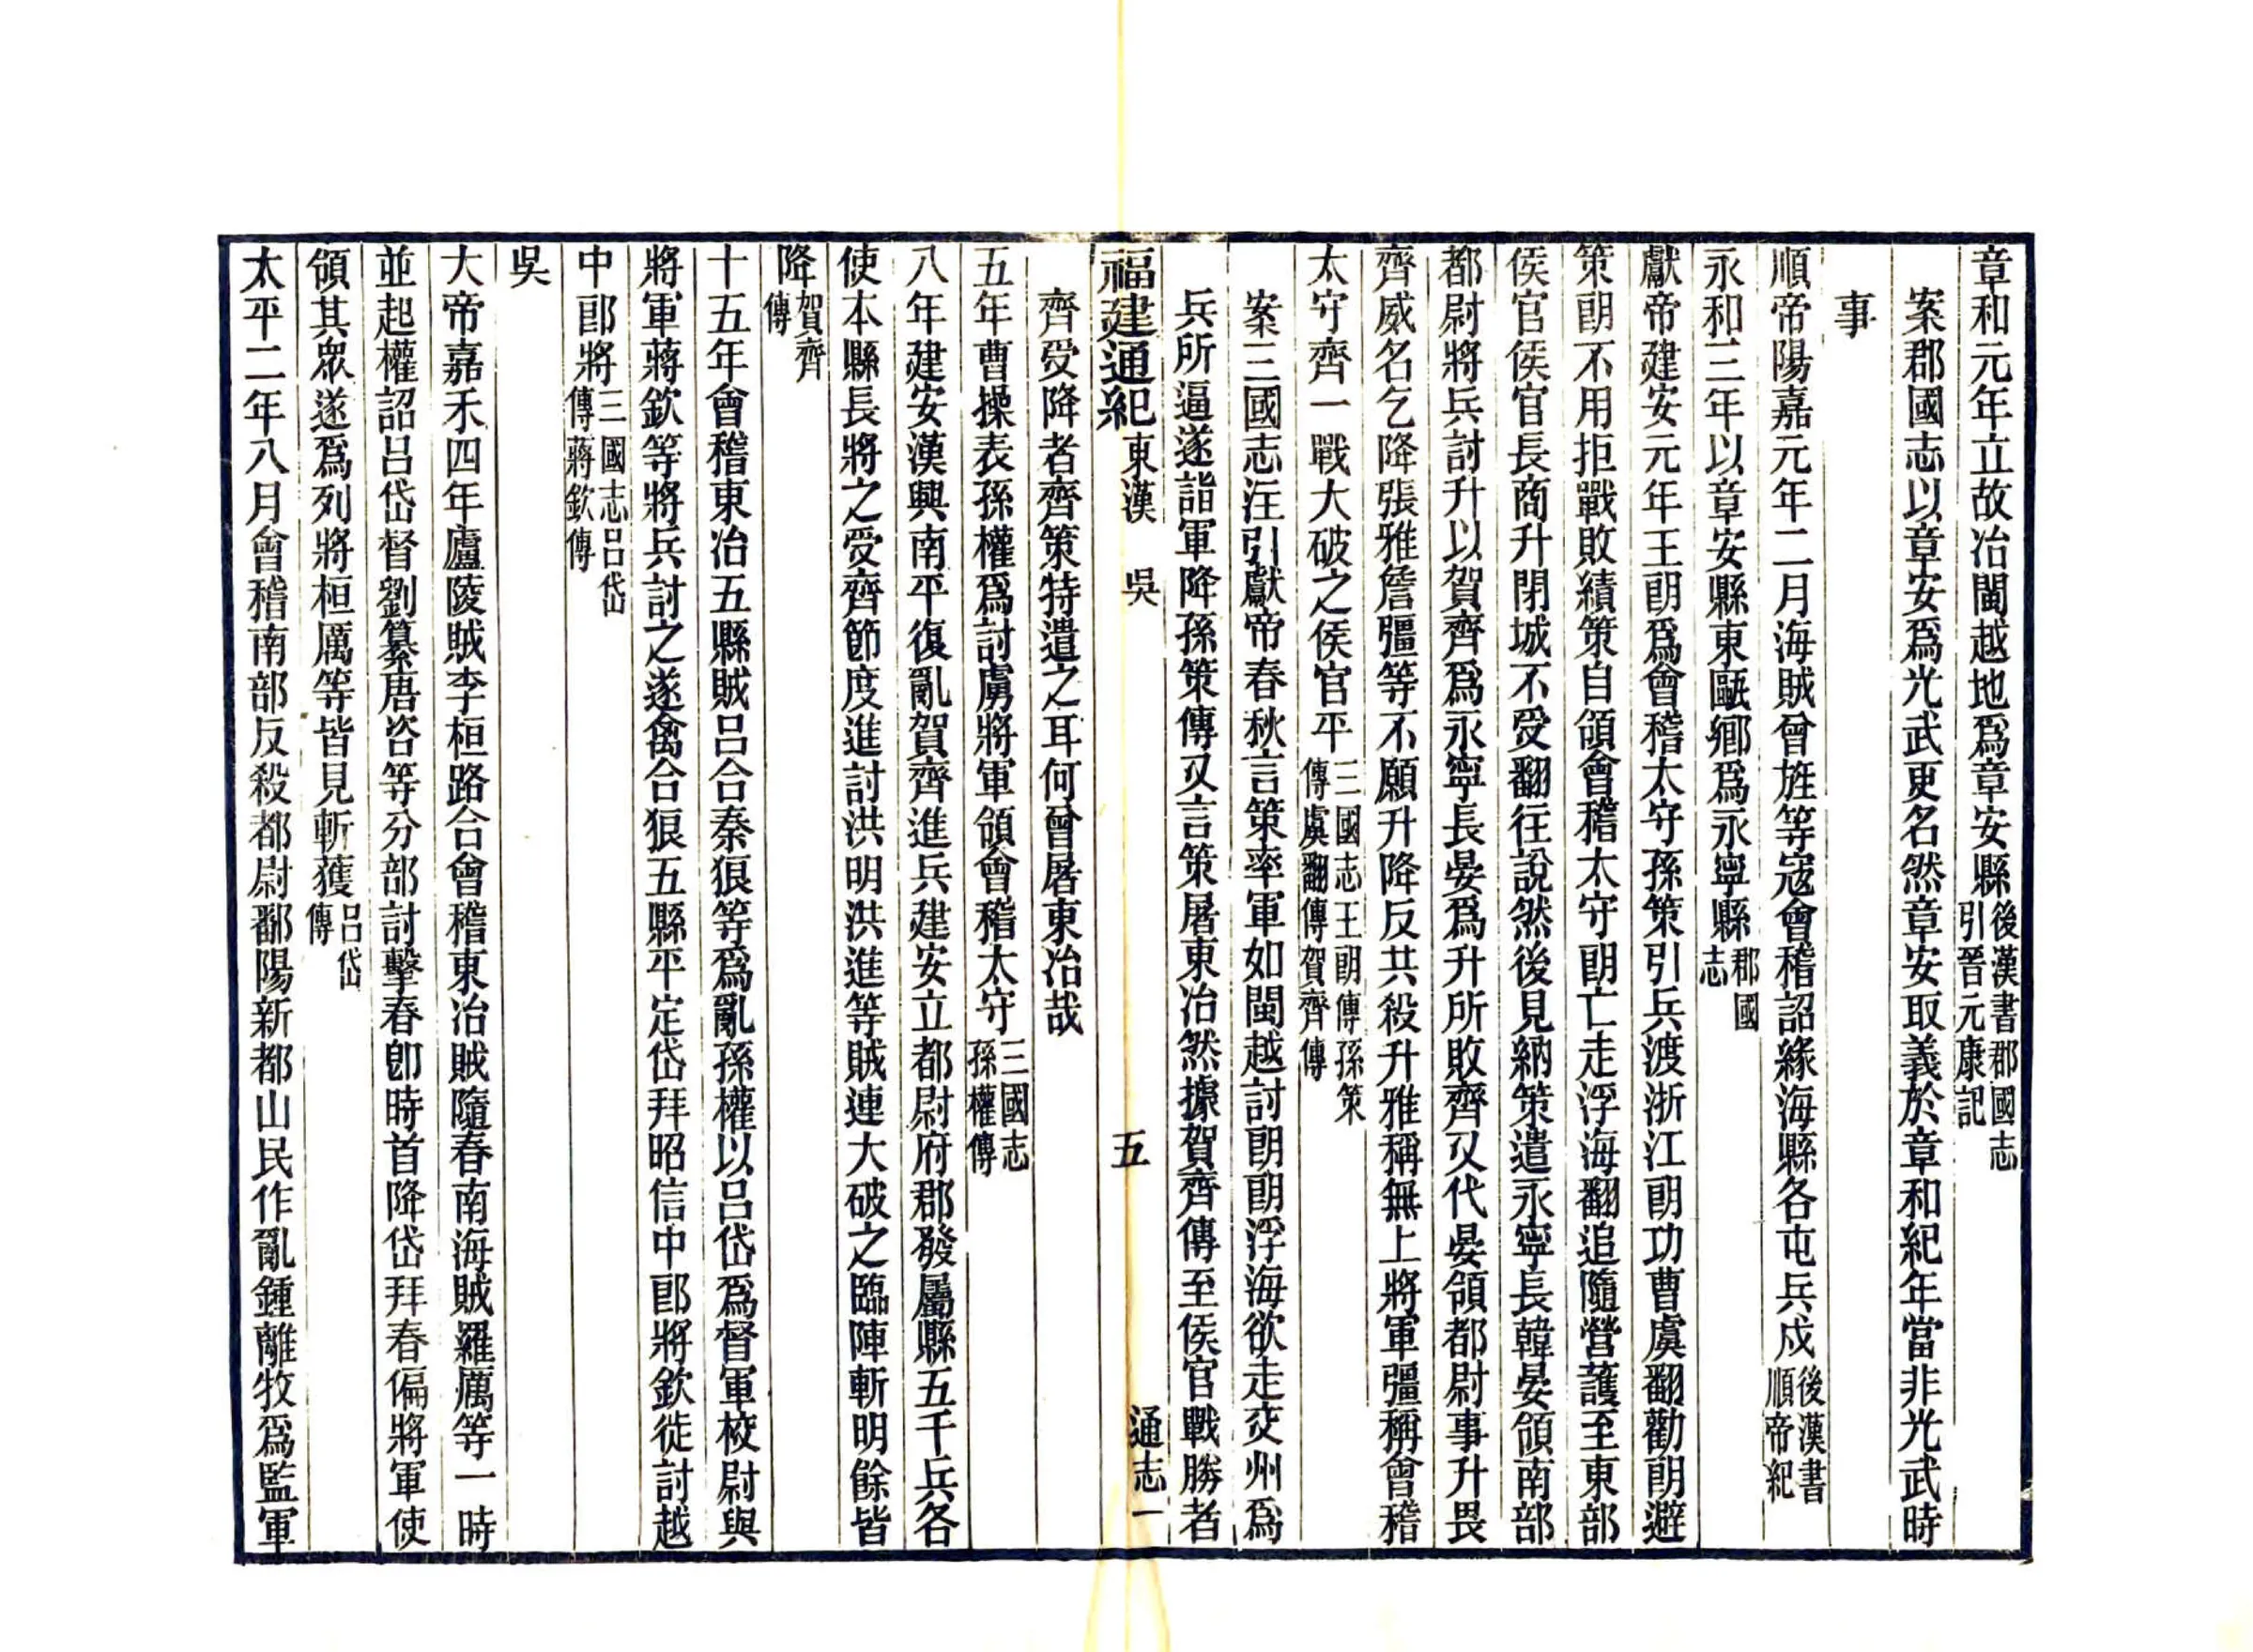 章和元年立故冶閩越地爲章安縣後漢書郡國志引晉元康記
案郡國志以章安爲光武更名然章安取義於章和紀年當非光武時
事
順帝陽嘉元年二月海賊曾旌等寇會稽詔緣海縣各屯兵戍後漢書順帝紀
永和三年以章安縣東甌鄉爲永寧縣郡國志
獻帝建安元年王朗爲會稽太守孫策引兵渡浙江朗功曹虞翻勸朗避
策朗不用拒戰敗績策自領會稽太守朗亡走浮海翻追隨營護至東部
侯官侯官長商升閉城不受翻往說然後見納策遣永寧長韓晏領南部
都尉將兵討升以賀齊爲永寧長晏爲升所敗齊又代晏領都尉事升畏
齊威名乞降張雅詹彊等不願升降反共殺升雅稱無上將軍彊稱會稽
太守齊一戰大破之侯官平三國志王朗傳孫策傳虞翻傳賀齊傳
案三國志注引獻帝春秋言策率軍如閩越討朗朗浮海欲走交州爲
兵所逼遂詣軍降孫策傳又言策屠東冶然據賀齊傳至侯官戰勝者
福建通紀 東漢 吳 五 通志一
齊受降者齊策特遣之耳何曾屠東冶哉
五年曹操表孫權爲討虜將軍領會稽太守三國志孫權傳
八年建安漢興南平復亂賀齊進兵建安立都尉府郡發屬縣五千兵各
使本縣長將之受齊節度進討洪明洪進等賊連大破之臨陣斬明餘皆
降賀齊傳
十五年會稽東冶五縣賊呂合秦狼等爲亂孫權以呂岱爲督軍校尉與
將軍蔣欽等將兵討之遂禽合狼五縣平定岱拜昭信中郎將欽徙討越
中郎將三國志呂岱傳蔣欽傳
吳
大帝嘉禾四年廬陵賊李桓路合會稽東冶賊隨春南海賊羅厲等一時
並起權詔呂岱督劉纂唐咨等分部討擊春卽時首降岱拜春偏將軍使
領其衆遂爲列將桓厲等皆見斬獲呂岱傳
太平二年八月會稽南部反殺都尉鄱陽新都山民作亂鍾離牧爲監軍